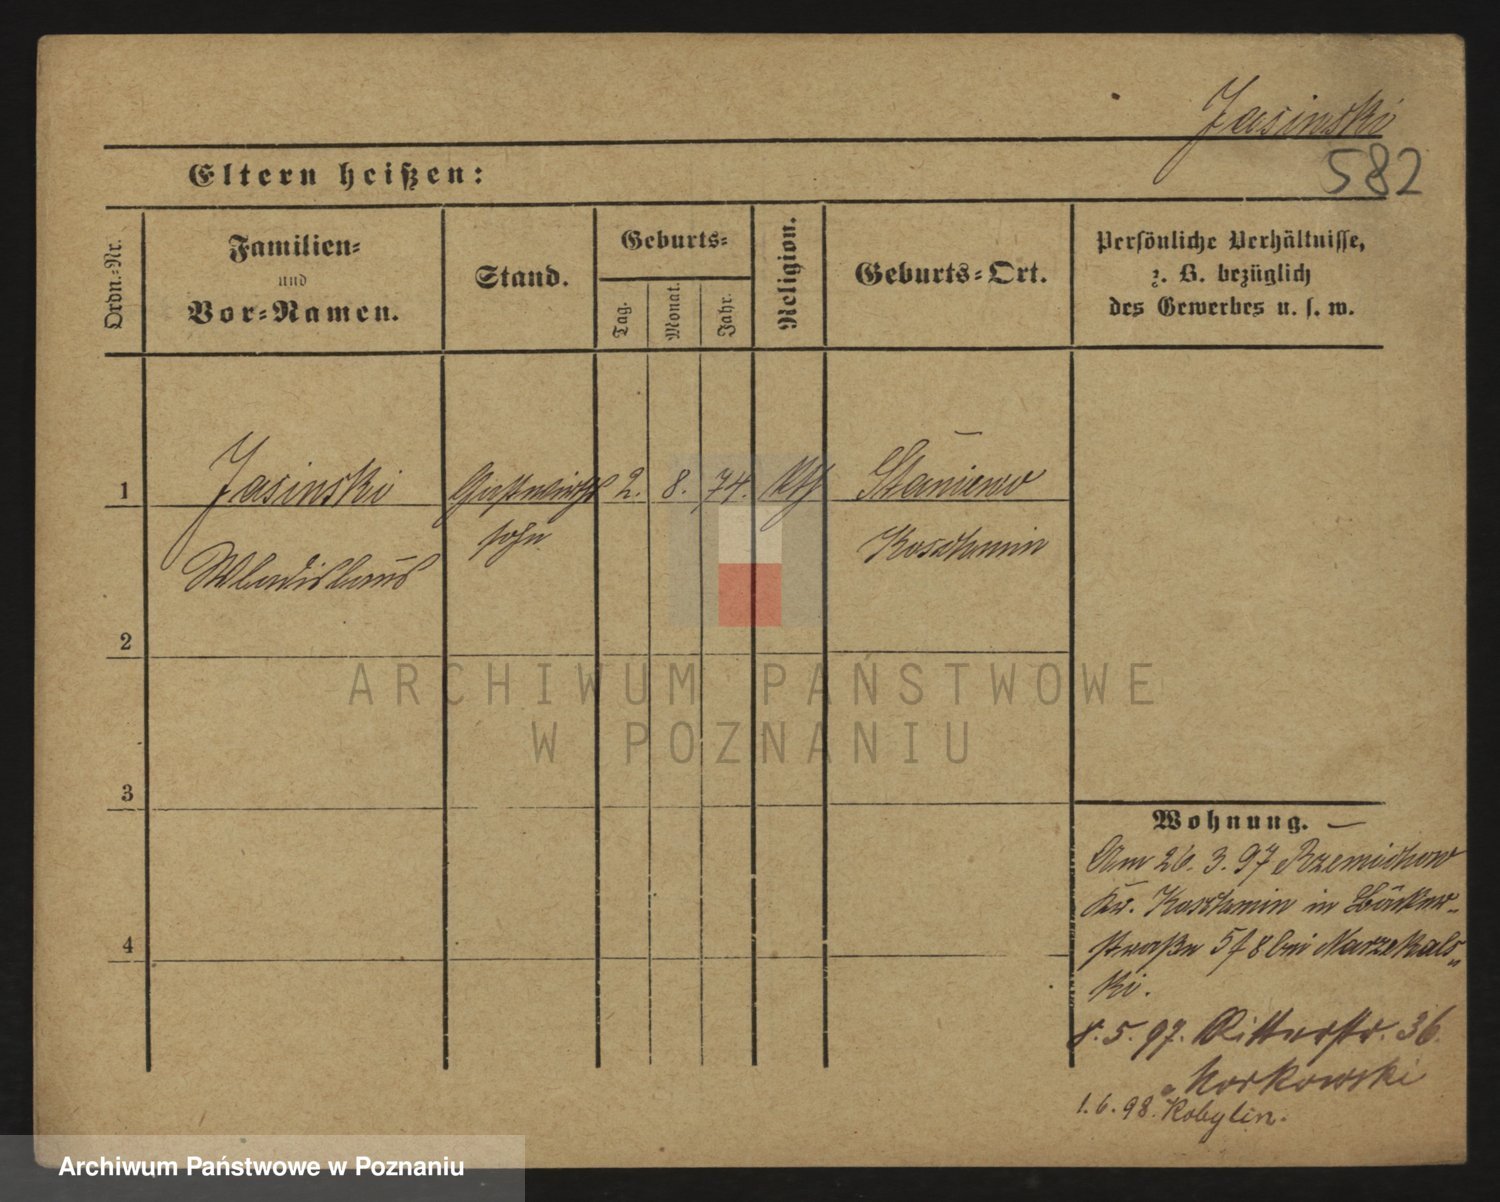 Jasinski
582
Eltern heißen:
Ordn.=Nr.
Familien=
und
Vor=Namen.
Stand.
Geburts=
Tag.
Monat.
Jahr.
Religion.
Geburts=Ort.
Persönliche Verhältnisse,
z. B. bezüglich
des Gewerbes u. s. w.
1
Jasinski
Gastwirths
2.
8.
74.
Kth
Staniewo
sohn
Koschmin
Wladislaus
2
3
4
Wohnung.
Am 26. 3. 97
Kr. Koschmin in Bäcker-
straße 5/8 bei Marzekals-
ki.
8. 5. 97. Ritterstr. 36.
Norkowski
1. 6. 98. Kobylin.
ARCHIWUM PAŃSTWOWE
W POZNANIU
Archiwum Państwowe w Poznaniu